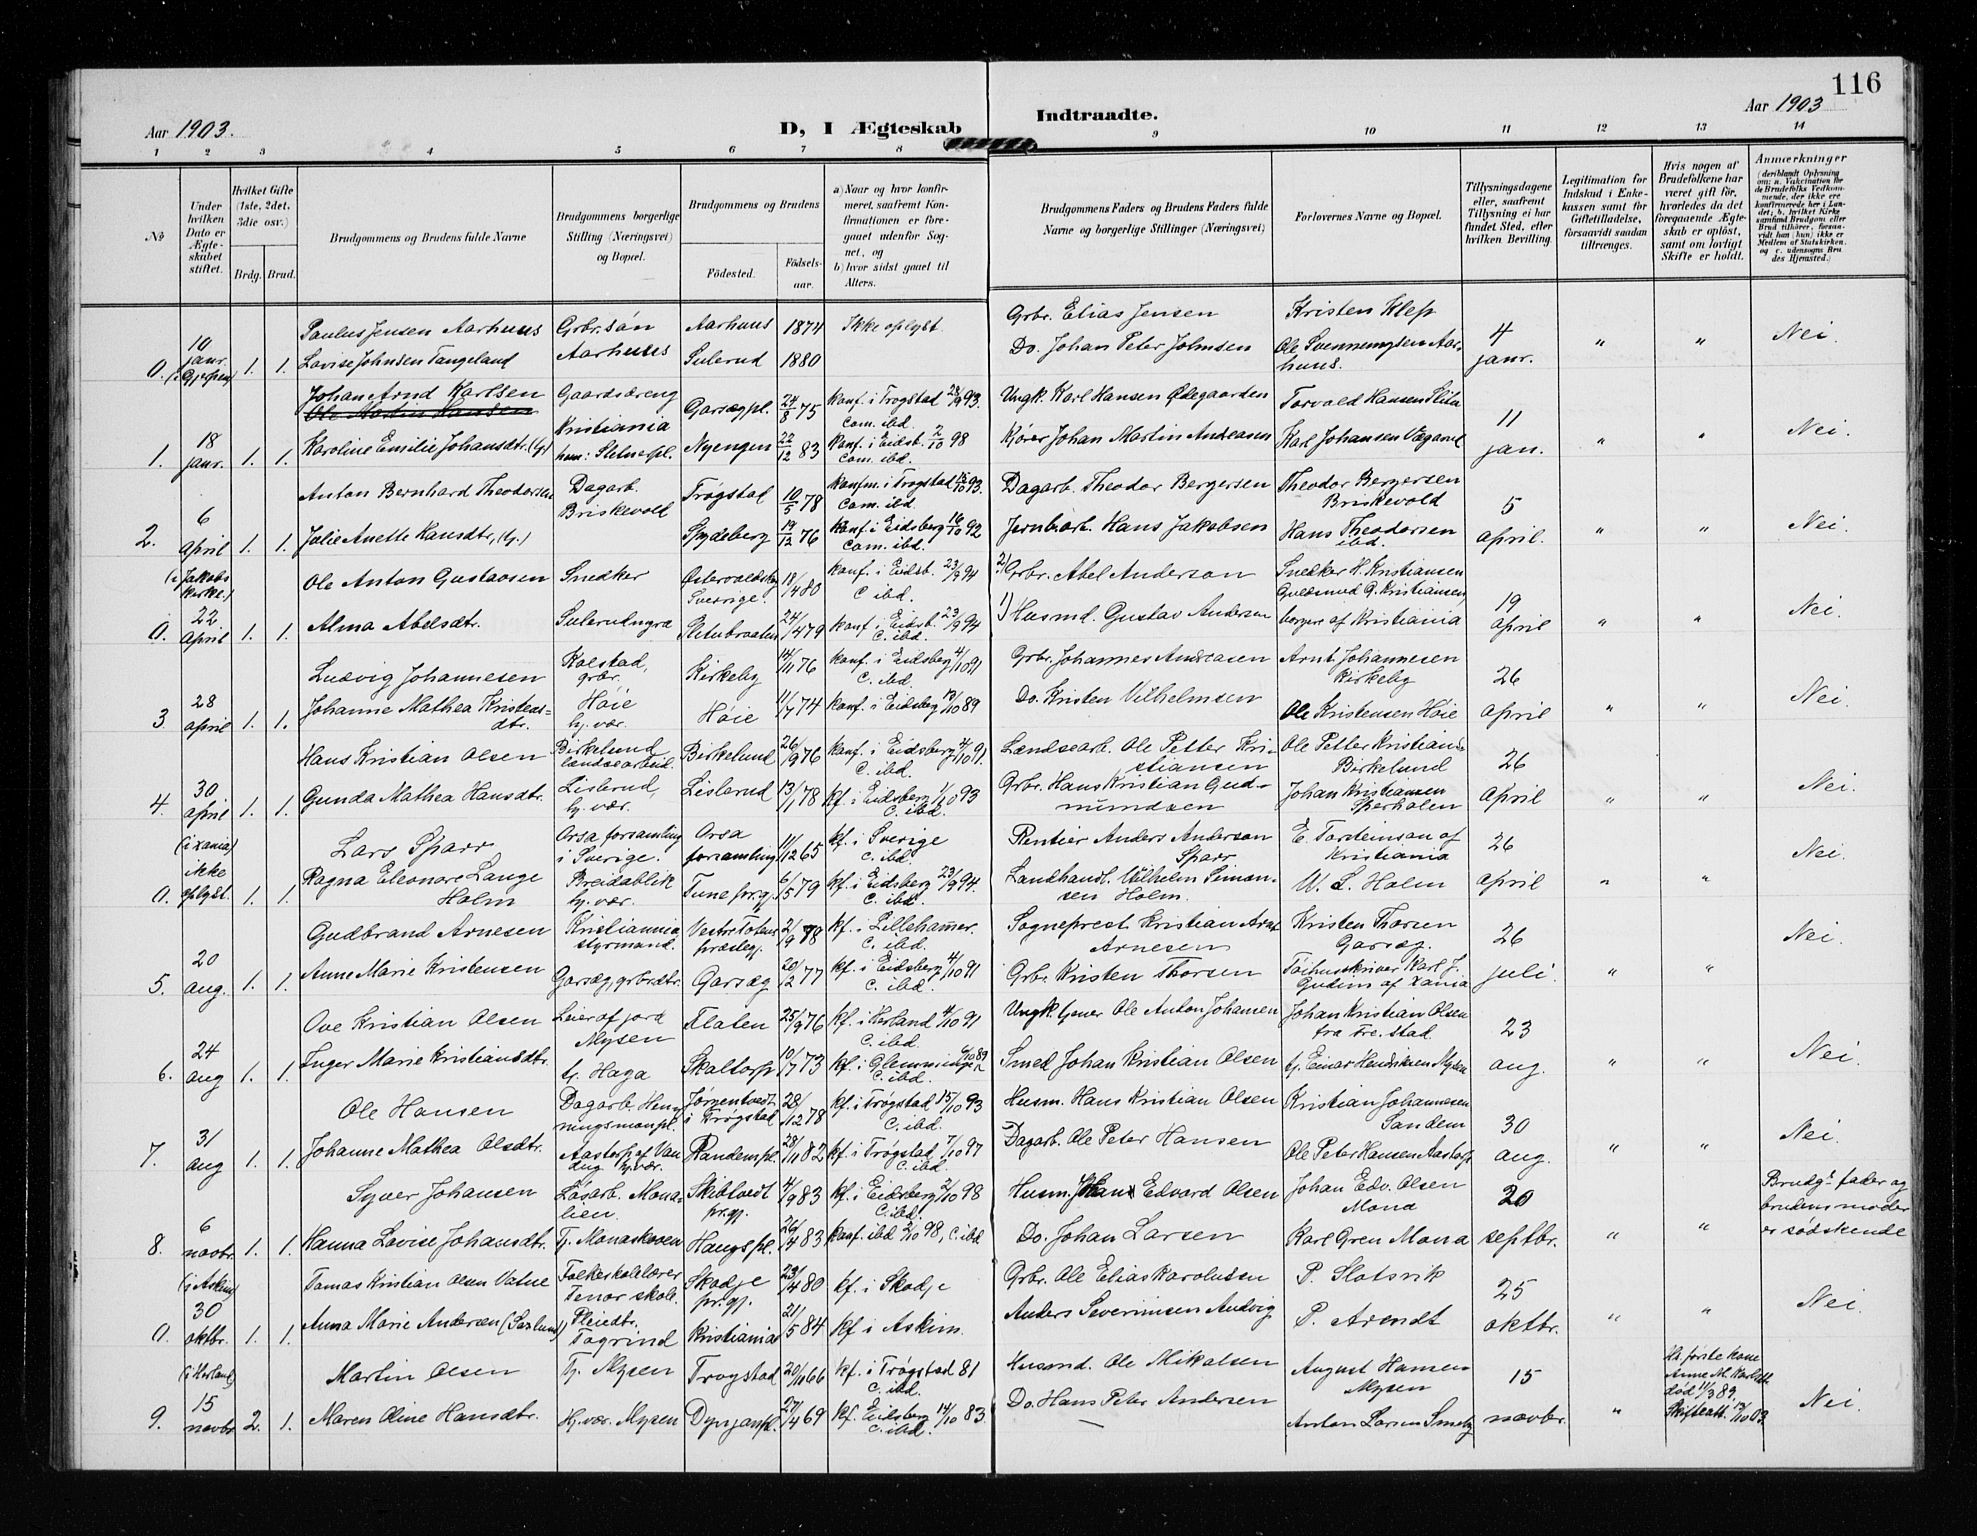 116
Aar 1903.
D, I Ægteskab
Indtraadte.
Aar 1903
1 2 3 4 5 6 7 8 9 10 11 12 13 14
No
Under hvilken Dato er Ægteskabet stiftet.
Hvilket Gifte (1ste, 2det, 3die osv.)
Brdg. Brud.
Brudgommens og Brudens fulde Navne
Brudgommens borgerlige Stilling (Næringsvei) og Bopæl.
Brudgommens og Brudens
Fødested.
Fødsels-aar.
a) Naar og hvor konfirmeret, saafremt Konfirmationen er foregaaet udenfor Sognet, og
b) hvor sidst gaaet til Alters.
Brudgommens Faders og Brudens Faders fulde Navne og borgerlige Stillinger (Næringsvei)
Forlovernes Navne og Bopæl.
Tillysningsdagene eller, saafremt Tillysning ei har fundet Sted, efter hvilken Bevilling.
Legitimation for Indskud i Enkekassen samt for Giftetilladelse, forsaavidt saadan tiltrænges.
Hvis nogen af Brudefolkene har været gift før, hvorledes da det foregaaende Ægteskab er opløst, samt om lovligt Skifte er holdt.
Anmærkninger
(deriblandt Oplysning om: a. Vaccination for de Brudefolks Vedkommende, der ikke ere konfirmerede her i Landet; b. hvilket Kirkesamfund Brudgom eller Brud tilhører, forsaavidt han (hun) ikke er Medlem af Statskirken, og c. udensogns Brudes Hjemsted.)
Paulus Jensen Aarhuus Grbr. søn Aarhuus 1874 Ikke oplyst. Grbr. Elias Jensen Kristen Klep
0. 10 janr. (i Gjerpen) 1. 1. Lovise Johnsen Tangeland Aarhuus Sulerud 1880 Do. Johan Peter Johnsen Ole Svennungsen Aarhuus. 4 janr. " " Nei.
Johan Arnd Karlsen Gaardsdreng Kristiania Garsegpl. 24/8 75 konf. i Trøgstad 93. com. ibd. Ungk. Karl Hansen Ødegaarden Torvald Hansen
Ole Martin Hansen
1. 18 janr. 1. 1. Karoline Emilie Johansdtr. (tj) Nyengen 22/12 83 konf. i Eidsb. 2/10 98 com. ibd. Kjører Johan Martin Andreasen Karl Johansen 11 jan. " " Nei.
Anton Bernhard Theodorsen Dagarb. Briskevold Trøgstad 10/5 78 konfm. i Trøgstad 93. Com. ibd. Dagarb. Theodor Bergersen Theodor Bergersen Briskevold
2. 6 April 1. 1. Julie Anette Hansdtr, (tj.) Spydeberg 19/12 76 konf. i Eidsberg 16/10 92 com. ibd. Jernbarb. Hans Jakobsen Hans Theodorsen ibd. 5 april. " " Nei.
Ole Anton Gustavsen Snedker Sverige. 18/4 80 konf. i Eidsb. 23/9 94 c ibd. 2) Grbr. Abel Anderson Snedker H. Kristiansen
0. (i Jakobs kirke.) 22 april 1. 1. Alma Abelsdtr. Slitubraaten 24/4 79 konf. i Eidsb. 23/9 94 c. ibd. 1) Husmd. Gustav Anderson Guldsmed G. Kristiansen, begge af Kristiania 19 april " " Nei.
Ludvig Johannesen Kolstad, Kirkeby 14/11 76 konf. i Eidsberg 4/10 91 c. ibd. Grbr. Johannes Andreasen Arnt Johannesen Kirkeby
3 28 april 1. 1. Johanne Mathea Kristensdtr. Høie hj. vær. Høie 11/7 74 konf. i Eidsberg 13/10 89 Do. Kristen Vilhelmsen Ole Kristensen Høie 26 april " " Nei.
Hans Kristian Olsen Birkelund Birkelund 26/9 76 konf. i Eidsberg 4/10 91. c. ibd. Ole Petter Kristiansen Ole Petter Kristians. Birkelund
4. 30 april 1. 1. Gunda Mathea Hansdtr. Lislerud, hj. vær. Lislerud 13/1 78 kf. i Eidsberg 1/10 93 c. ibd. Grbr. Hans Kristian Gudmundsen Johan Kristiansen 26 april " " Nei.
Lars Sparr Orsa forsamling i Sverige. Orsa forsamling 11/12 65 kf. i Sverige c. ibd. Rentier Anders Anderson Sparr E. Torsteinson af Kristiania
0. (i Xania) ikke oplyst. 1. 1. Ragna Eleonore Lange Holm Breidablik hj. vær. Tune pr.gj. 6/5 79 kf. i Eidsberg 23/9 94. c. ibd. Landhandl. Vilhelm Simonsen Holm. W. S. Holm 26 april " " Nei.
Gudbrand Arnesen Kristiania styrmand. Vestre Toten præstegj. 2/9 78 kf. i Lillehamer. c. ibd. Sogneprest Kristian Arnt Arnesen Kristen Thorsen Garseg.
5. 20 aug. 1. 1. Anne Marie Kristensen Garseg, grbr.dtr. Garseg 20/12 77 kf. i Eidsberg 4/10 91 c. ibd. Grbr. Kristen Thorsen Karl J. Gudim af Xania 26 juli. " " Nei.
Ove Kristian Olsen Leier af jord Mysen Flaten 25/9 76 kf. i Herland 4/10 91 c. ibd. Ungk. Ole Anton Johansen Johan Kristian Olsen fra Fre.stad
6. 24 aug 1. 1. Inger Marie Kristiansdtr. tj. Haga Skaltorp 10/7 73 kf. i Glemminge 89 c. ibd. Smed Johan Kristian Olsen tj. Einar Henriksen Mysen 23 aug. " " Nei.
Ole Hansen Dagarb. Henningsmonpl. Jørgentvedt i Trøgstad 28/12 78 kf. i Trøgstad 15/10 93 c. ibd. Husm. Hans Kristian Olsen Kristian Johannesen Sandem
7. 31 aug 1. 1. Johanne Mathea Olsdtr. Aastorp hj. vær. Randempl. 28/11 82 kf. i Trøgstad 7/10 97 c. ibd. Dagarb. Ole Peter Hansen Ole Peter Hansen Aastorp 30 aug. " " Nei.
Syver Johansen Løsarb. Monalien. Skibtvedt pr.gj. 4/9 83 kf. i Eidsberg 2/10 98 c. ibd. Husm. Johan Edvard Olsen Johan Edv. Olsen Mona
8. 6 novbr. 1. 1. Hanna Lovise Johansdtr. Tj. Monaskoven Haugspl. 26/4 83 konf. ibd 2/10 98, c. ibd Do. Johan Larsen Karl Gren Mona 20 septbr. " " Brudg.s fader og brudens moder er sødskende
Tomas Kristian Olsen Vatne Folkeskolelærer Tenor skole. Skodje pr.gj. 23/4 80 kf. i Skodje Grbr. Ole Elias Karolusen P. Slotsvik
0. (i Askim) 30 oktbr. 1. 1. Anna Marie Andersen (Saxlund) Pleiedtr. Togrind Kristiania 21/5 84 kf i Askim. Anders Severinsen Andvig P. Arendt 25 oktbr. " " Nei.
Martin Olsen Tj. Mysen Trøgstad 20/11 66 kf. i Trøgstad 81 c. ibd. Husmd. Ole Mikalsen August Hansen Mysen
9. (i Herland) 15 novbr 2. 1. Maren Oline Hansdtr. Hj. vær. Mysen 27/4 69 kf. Eidsberg 14/10 83. c. ibd. Do. Hans Peter Andersen Anton Larsen Smeby 15 novbr. " Hs første kone Anne M. død 11/3 89. Skifteatt. 03. Nei.